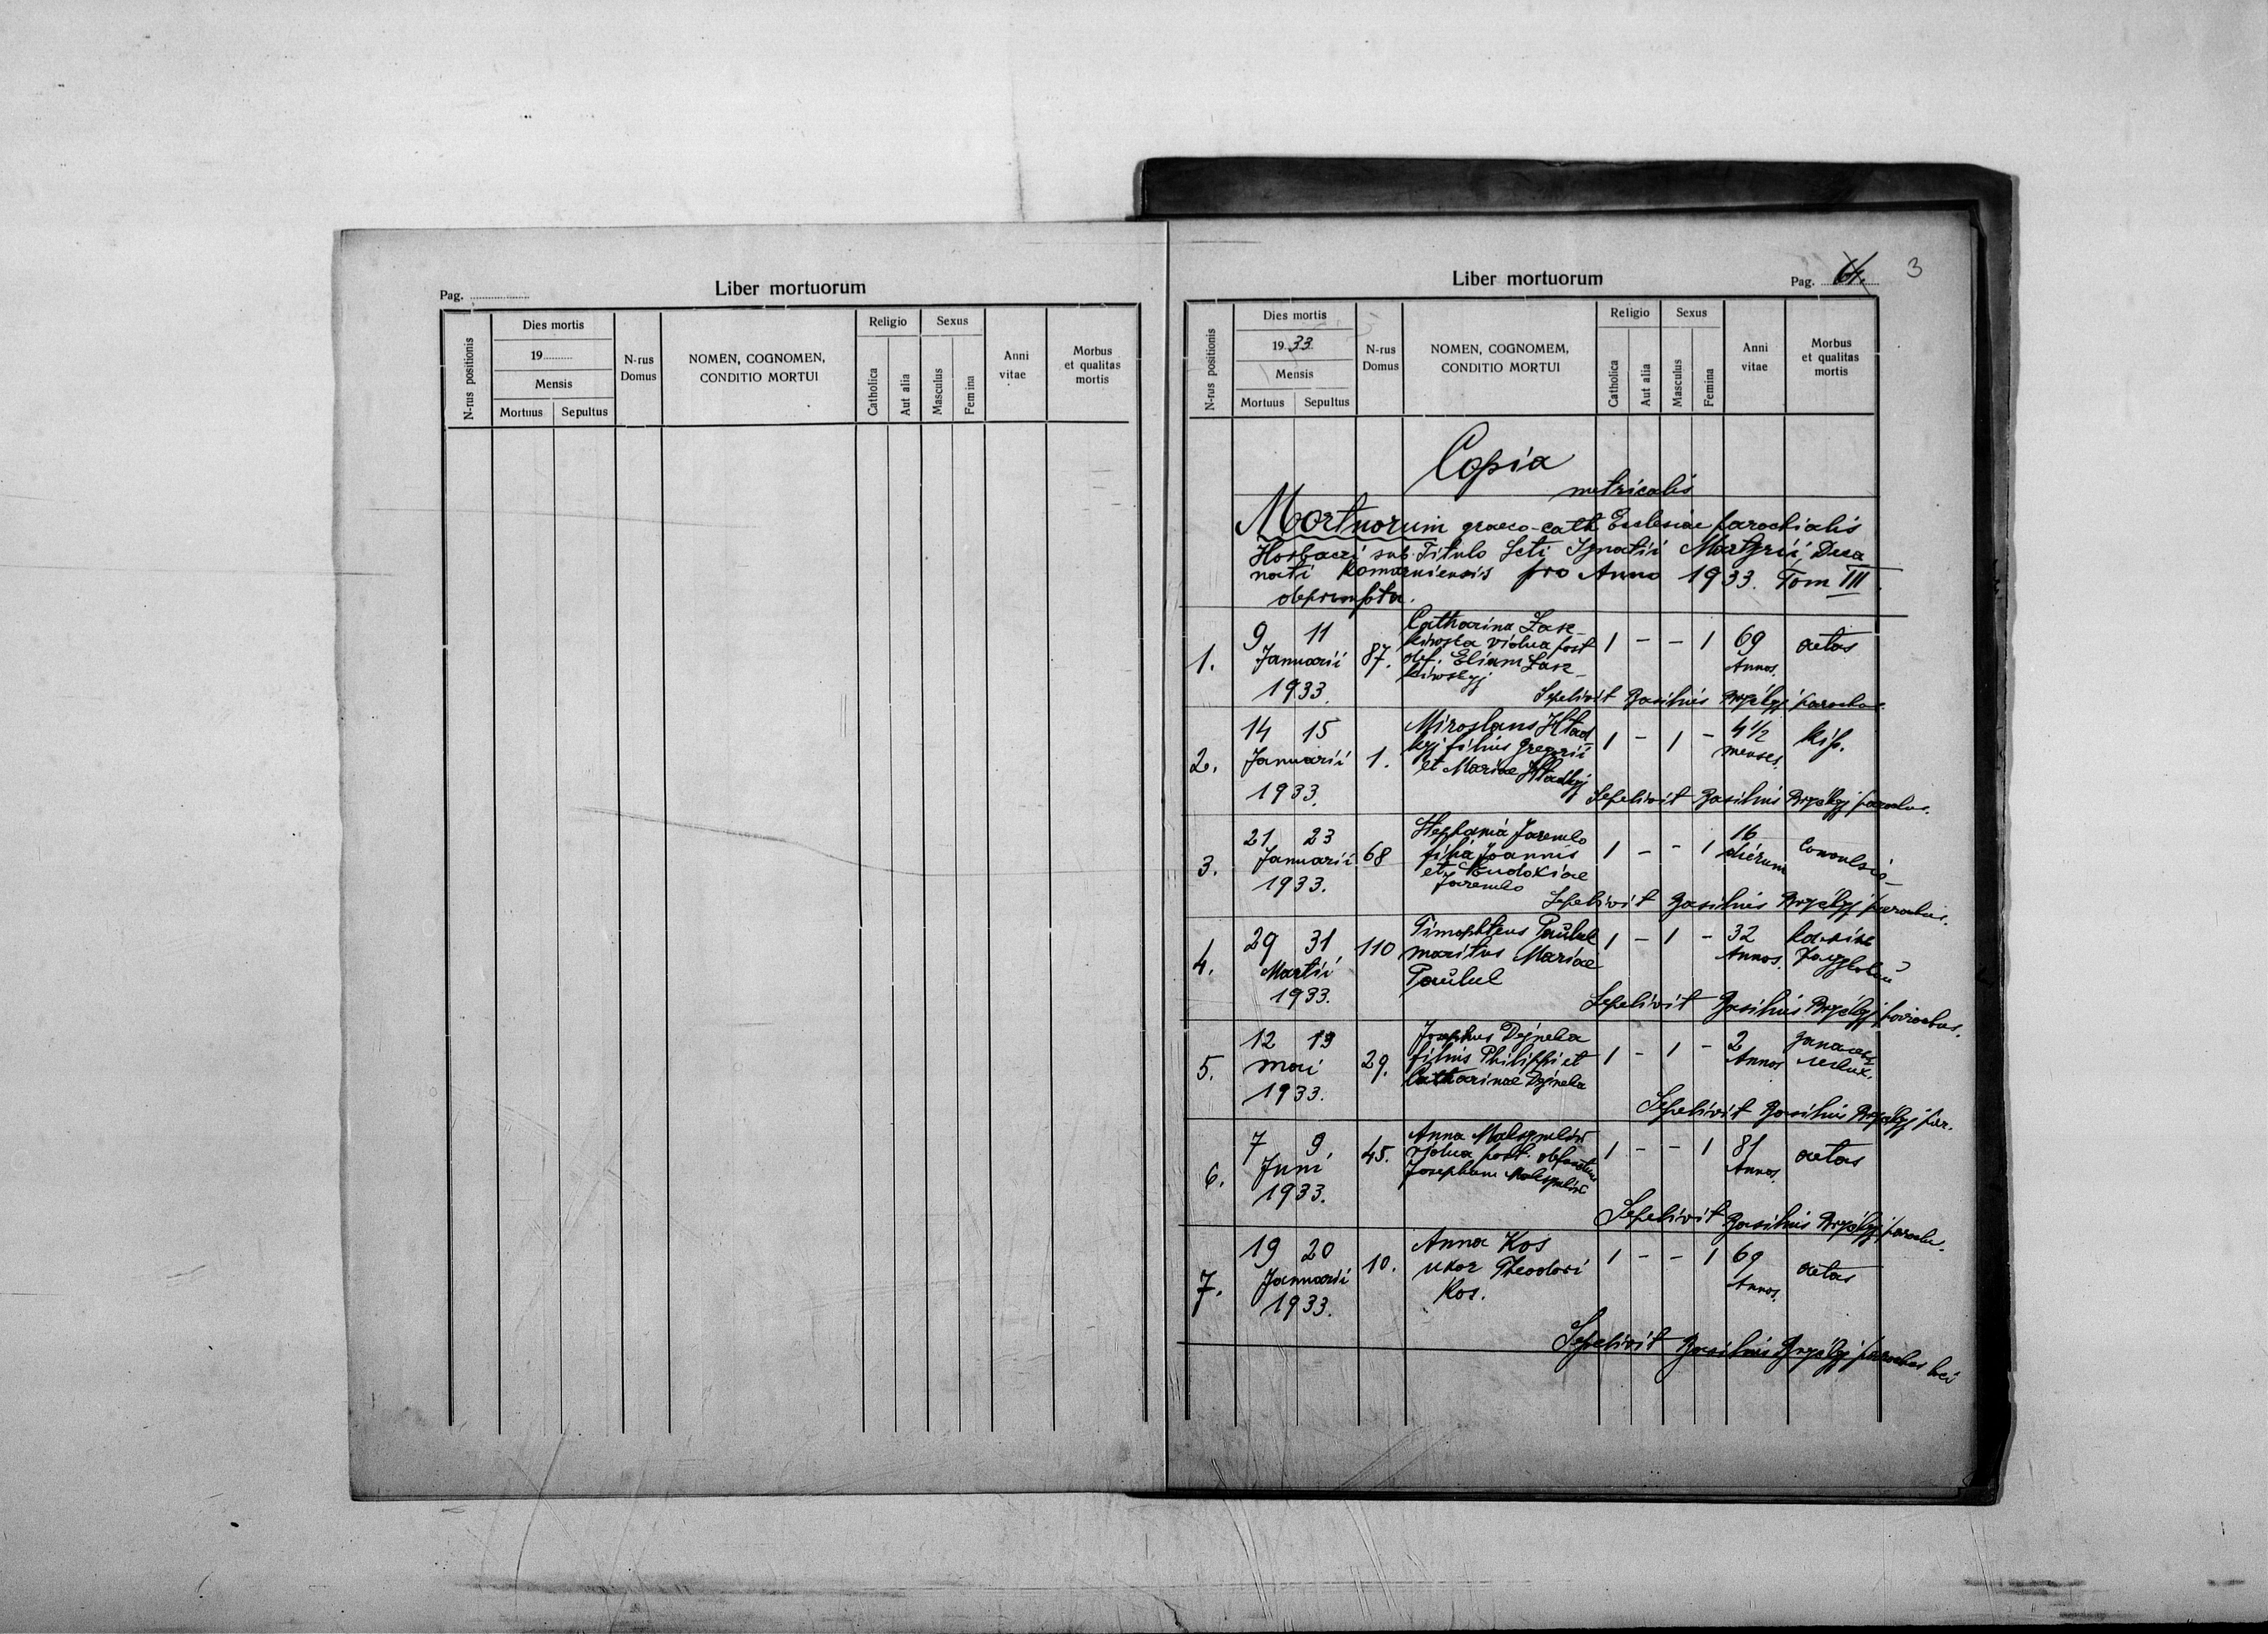 Pag.
Liber mortuorum
N-rus positionis
Dies mortis
19
Mensis
Mortuus Sepultus
N-rus Domus
NOMEN, COGNOMEN,
CONDITIO MORTUI
Religio
Catholica
Aut alia
Sexus
Masculus
Femina
Anni vitae
Morbus
et qualitas
mortis
Liber mortuorum
Pag. 3
N-rus positionis
Dies mortis
1933
Mensis
Mortuus Sepultus
N-rus Domus
NOMEN, COGNOMEM,
CONDITIO MORTUI
Religio
Catholica
Aut alia
Sexus
Masculus
Femina
Anni vitae
Morbus
et qualitas
mortis
Copia
metricalis
Mortuorum graeco-cath. Ecclesiae parochialis
Horbaczi sub Titulo Scti Ignatii Martyrii, Deca
nati Komarniensis pro Anno 1933. Tom III
1. 9 11 Januarii 1933. 87. Catharina
vidua post
def. Eliam
1 - - 1 69 Annos. aetas
Sepelivit Basilius parochus.
2. 14 15 Januarii 1933. 1. Miroslaus Hład
kyj filius Gregorii
et Mariae Hładkyj
1 - 1 - 4 1/2 menses.
Sepelivit Basilius parochus.
3. 21 23 Januarii 1933. 68 Stephania Jaremko
filia Joannis
et Eudokiae
Jaremko
1 - - 1 16 dierum Convulsio
Sepelivit Basilius parochus.
4. 29 31 Martii 1933. 110 Timophteus
maritus Mariae
1 - 1 - 32 Annos.
Sepelivit Basilius parochus.
5. 12 13 mai 1933. 29. Josephus Dejneka
filius Philippi et
Catharinae Dejneka
1 - 1 - 2 Annos
Sepelivit Basilius par.
6. 7 9 Juni 1933. 45. Anna
vidua post
Josephum
1 - - 1 81 Annos. aetas
Sepelivit Basilius paroch.
7. 19 20 Januarii 1933. 10. Anna Kos
uxor Theodori
Kos.
1 - - 1 69 Annos. aetas
Sepelivit Basilius parochus loci